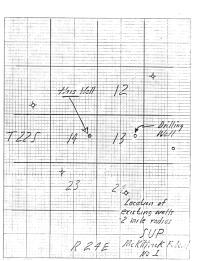 12
This Well
Drilling
Well
T 22 S 14 13
23 24
Location of
existing wells
2 mile radius
SUP
R 24 E
No 1